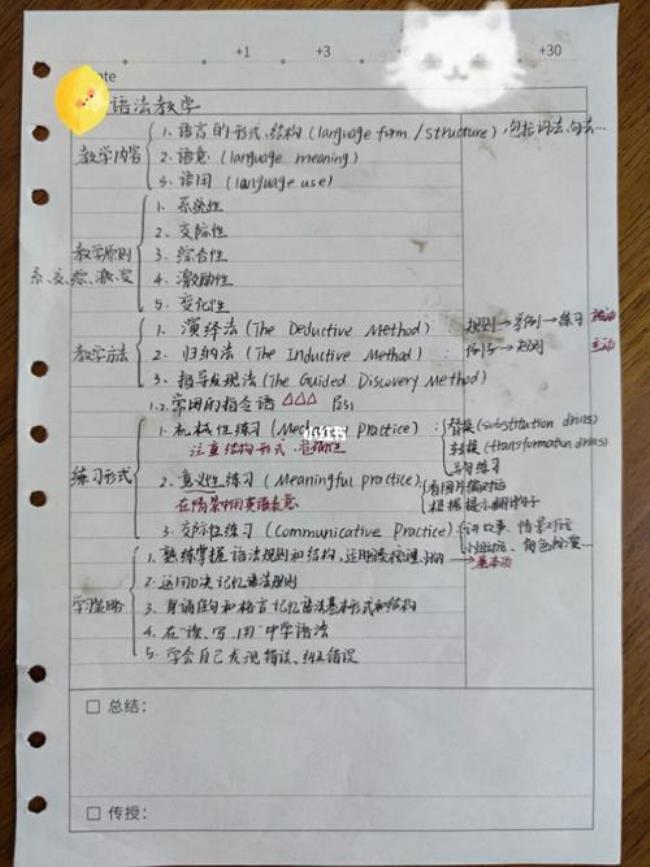 +1 +3 +30
语法教学
教学内容
1. 语言的形式、结构 (language form / structure), 包括词法、句法…
2. 语意 (language meaning)
3. 语用 (language use)
教学原则
系、交、综、激、变
1. 系统性
2. 交际性
3. 综合性
4. 激励性
5. 变化性
教学方法
1. 演绎法 (The Deductive Method) 规则→举例→练习
2. 归纳法 (The Inductive Method) 例子→规则 主动
3. 指导发现法 (The Guided Discovery Method)
1.2. 常用的指令语 △△△
练习形式
1. 机械性练习 Practice) : 替换 (substitution drills)
注重结构形式、准确性 转换 (transformation drills)
2. 意义性练习 (Meaningful practice): 看图片编对话
在情景中用英语表意 根据提示翻译句子
3. 交际性练习 (Communicative Practice) 讲故事、情景对话
小组活动、角色扮演…
学习策略
1. 熟练掌握语法规则和结构, →基本功
2. 运用口诀记忆语法规则
3. 背诵佳句和格言记忆语法基本形式和结构
4. 在“读、写、用”中学语法
5. 学会自己发现错误、纠正错误
□ 总结:
□ 传授: